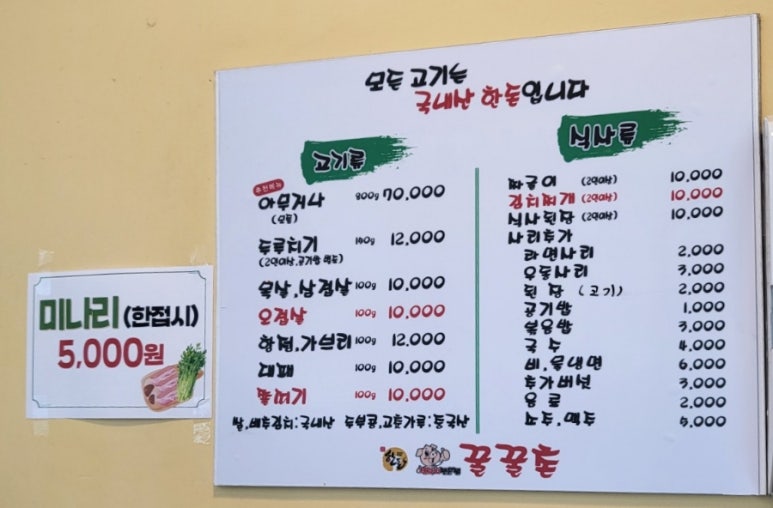 모든 고기는
국내산 한돈입니다
고기류
추천메뉴
아무거나 800g 70,000
(모듬)
두루치기 140g 12,000
(2인이상,공기밥 별도)
목살,삼겹살 100g 10,000
오겹살 100g 10,000
항정,가브리 100g 12,000
대패 100g 10,000
뽈떼기 100g 10,000
쌀,배추김치:국내산 두부콩,고춧가루:중국산
식사류
찌글이 (2인이상) 10,000
김치찌개 (2인이상) 10,000
식사된장 (2인이상) 10,000
사리추가
라면사리 2,000
우동사리 3,000
된장 (고기) 2,000
공기밥 1,000
볶음밥 3,000
국수 4,000
비,물냉면 6,000
추가버섯 3,000
음료 2,000
소주,맥주 5,000
한돈
꿀꿀
미나리(한접시)
5,000원